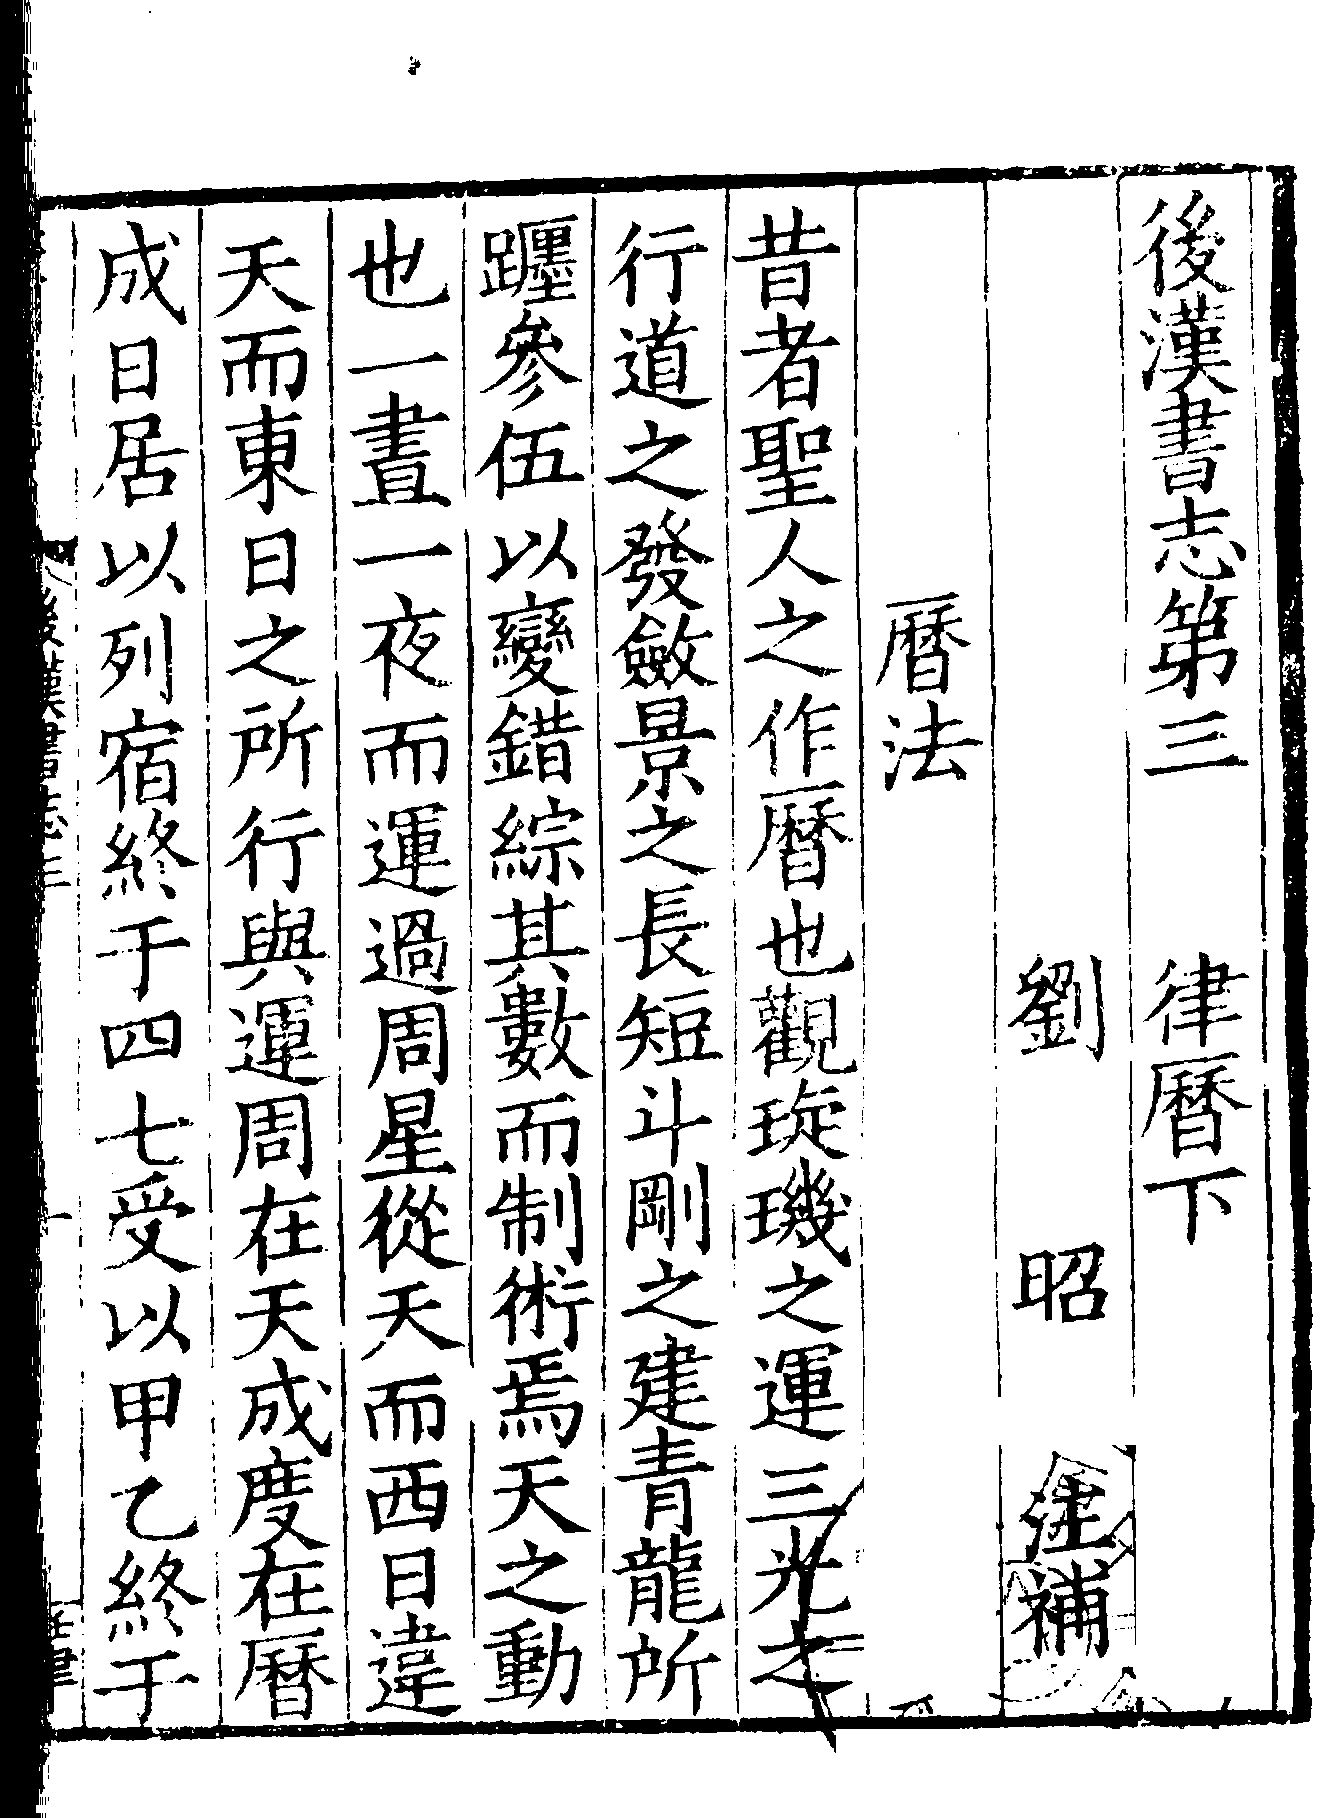 後漢書志第三 律曆下
劉昭注補
曆法
昔者聖人之作曆也觀琁璣之運三光之
行道之發斂景之長短斗剛之建青龍所
躔參伍以變錯綜其數而制術焉天之動
也一晝一夜而運過周星從天而西日違
天而東日之所行與運周在天成度在曆
成日居以列宿終于四七受以甲乙終于
後漢書志三